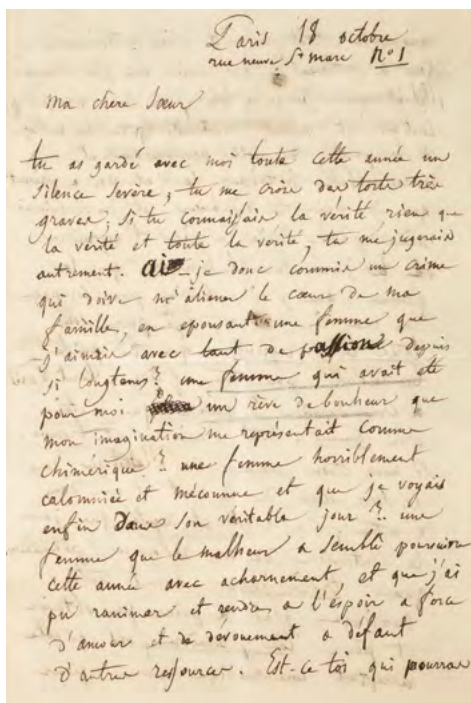 Paris 18 octobre
rue neuve St marc No 1
ma chere Sœur
tu as gardé avec moi toute cette année un
silence sevère, tu me crois des torts très
graves; si tu connaissais la vérité rien que
la vérité et toute la vérité, tu me jugerais
autrement. ai-je donc commis un crime
qui doive m'aliener le cœur de ma
famille, en epousant une femme que
j'aimais avec tant de passion depuis
si longtems? une femme qui avait été
pour moi un rêve de bonheur que
mon imagination me représentait comme
chimérique? une femme horriblement
calomniée et méconnue et que je voyais
enfin dans son véritable jour? une
femme que le malheur a semblé poursuivre
cette année avec acharnement, et que j'ai
pu ranimer et rendre a l'éspoir a force
d'amour et de dévouement a défaut
d'autres ressources. Est-ce toi qui pourras